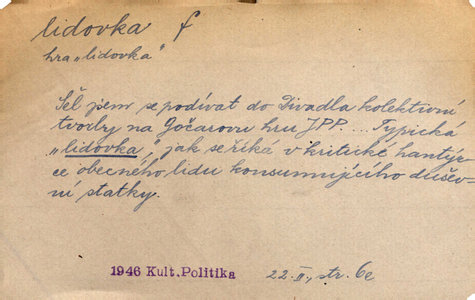 lidovka f
hra „lidovka“
Šel jsem se podívat do Divadla kolektivní
tvorby na Gočárovu hru JPP.... Typická
„lidovka“, jak se říká v kritické hantýr-
ce obecného lidu konsumujícího dušev-
ní statky.
1946 Kult. Politika 22.II., str. 6c